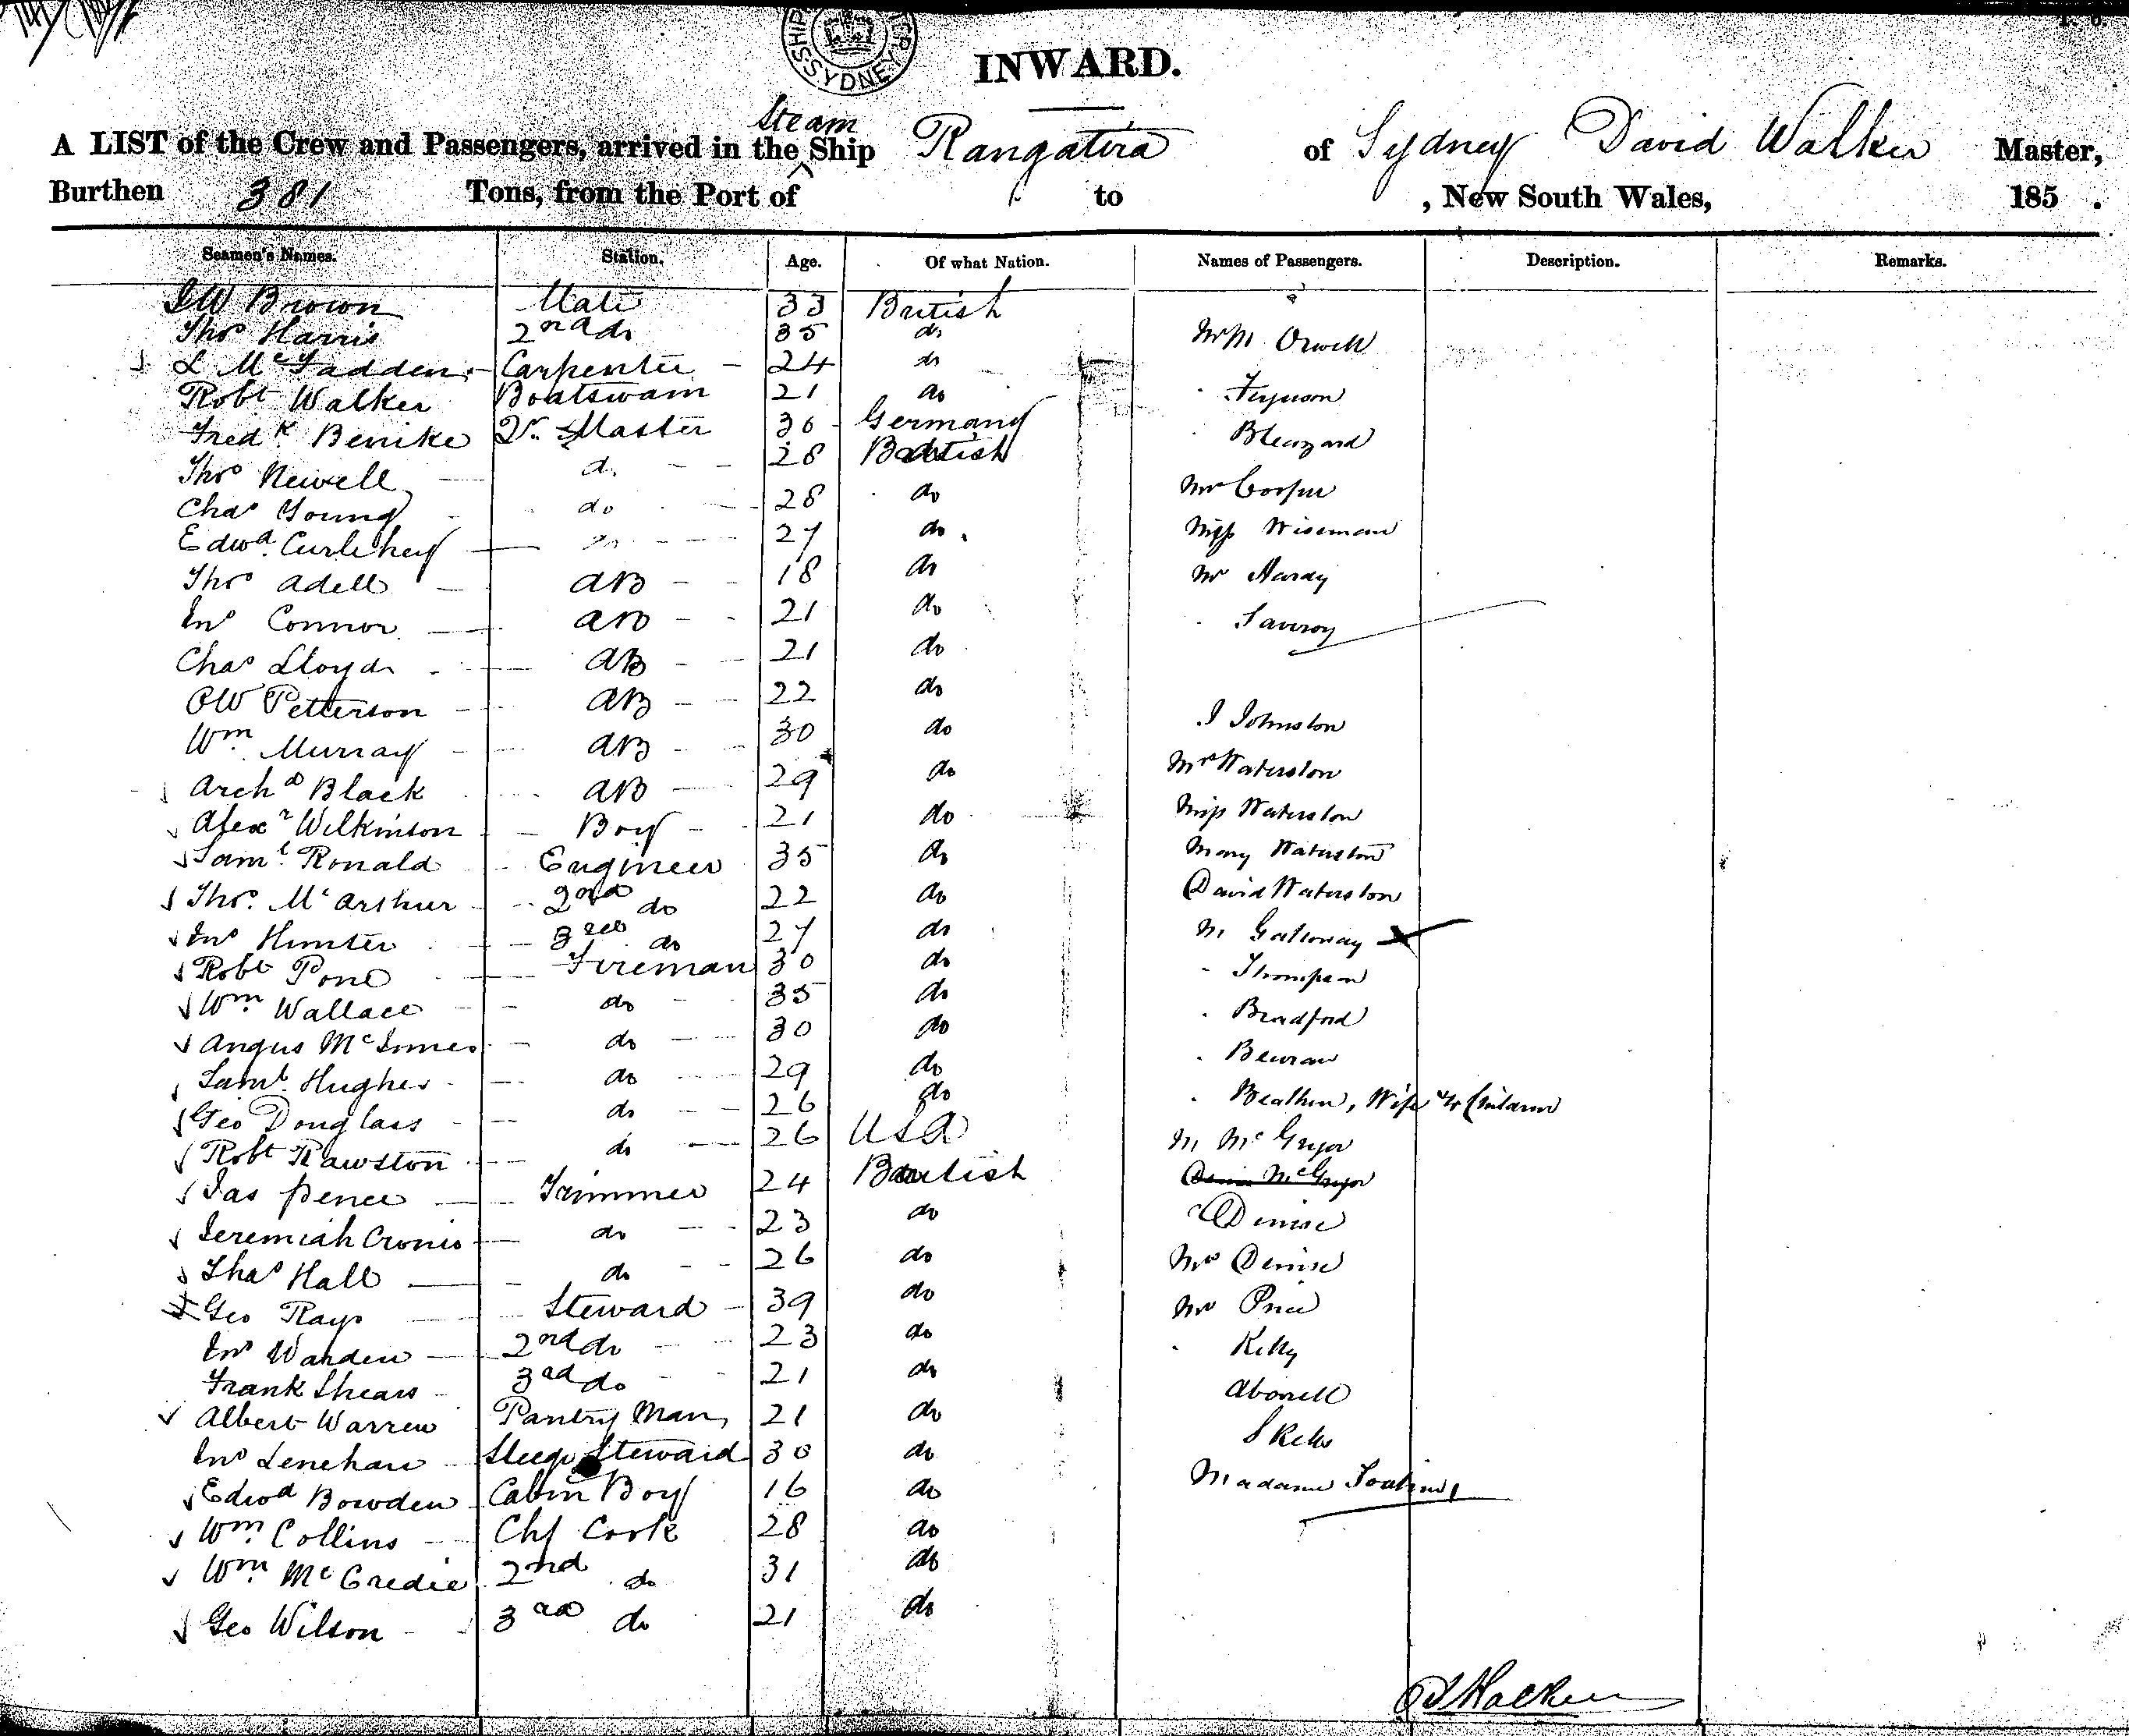 SHIP SYDNEY
INWARD.
A LIST of the Crew and Passengers, arrived in the Steam Ship Rangatira of Sydney David Walker Master,
Burthen 381 Tons, from the Port of to , New South Wales, 185 .
Seamen's Names. Station. Age. Of what Nation. Names of Passengers. Description. Remarks.
J W Brown Mate 33 British
Thos Harris 2nd do 35 do Mr M Orwell
L McFadden Carpenter 24 do
Robt Walker Boatswain 21 do Ferguson
Fredk Benike Qr. Master 36 Germany Bleazard
Thos Newell do 28 British
Chas Young do 28 do Mr Cooper
Edwd. do 27 do Miss Wiseman
Thos Adell AB 18 do Mr Hardy
Jno Connor AB 21 do
Chas Lloyd AB 21 do
OW Petterson AB 22 do J Johnston
Wm. Murray AB 30 do Mrs Waterston
Archd Black AB 29 do Miss Waterston
Alexr Wilkinson Boy 21 do Mary Waterston
Saml. Ronald Engineer 35 do David Waterston
Thos. McArthur 2nd do 22 do M Galloway
Jno Hunter 3rd do 27 do Thompson
Robt Pone Fireman 30 do Bradford
Wm Wallace do 35 do
Angus McInnes do 30 do
Saml. Hughes do 29 do Wife & Children
Geo Douglass do 26 do M McGregor
Robt Rawston do 26 USA McGregor
Jas Pence Trimmer 24 British Denise
Jeremiah Cronis do 23 do Mrs Denise
Thos Hall do 26 do Mr Price
Geo Rays Steward 39 do Kelly
Jno Warden 2nd do 23 do
Frank Shears 3rd do 21 do
Albert Warren Pantry Man 21 do Madame
Jno Lenehan Steerge Steward 30 do
Edwd Bowden Cabin Boy 16 do
Wm Collins Chf Cook 28 do
Wm McCredie 2nd do 31 do
Geo Wilson 3rd do 21 do